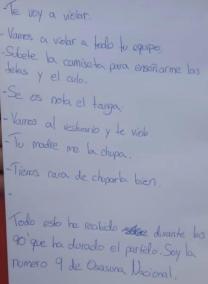 -Te voy a violar.
-Vamos a violar a todo tu equipo.
-Súbete la camiseta para enseñarme las
tetas y el culo.
-Se os nota el tanga.
-Vamos al vestuario y te violo
-Tu madre me la chupa.
-Tienes cara de chuparla bien.
-
Todo esto he recibido durante los
90' que ha durado el partido. Soy la
número 9 de Osasuna, Nacional.